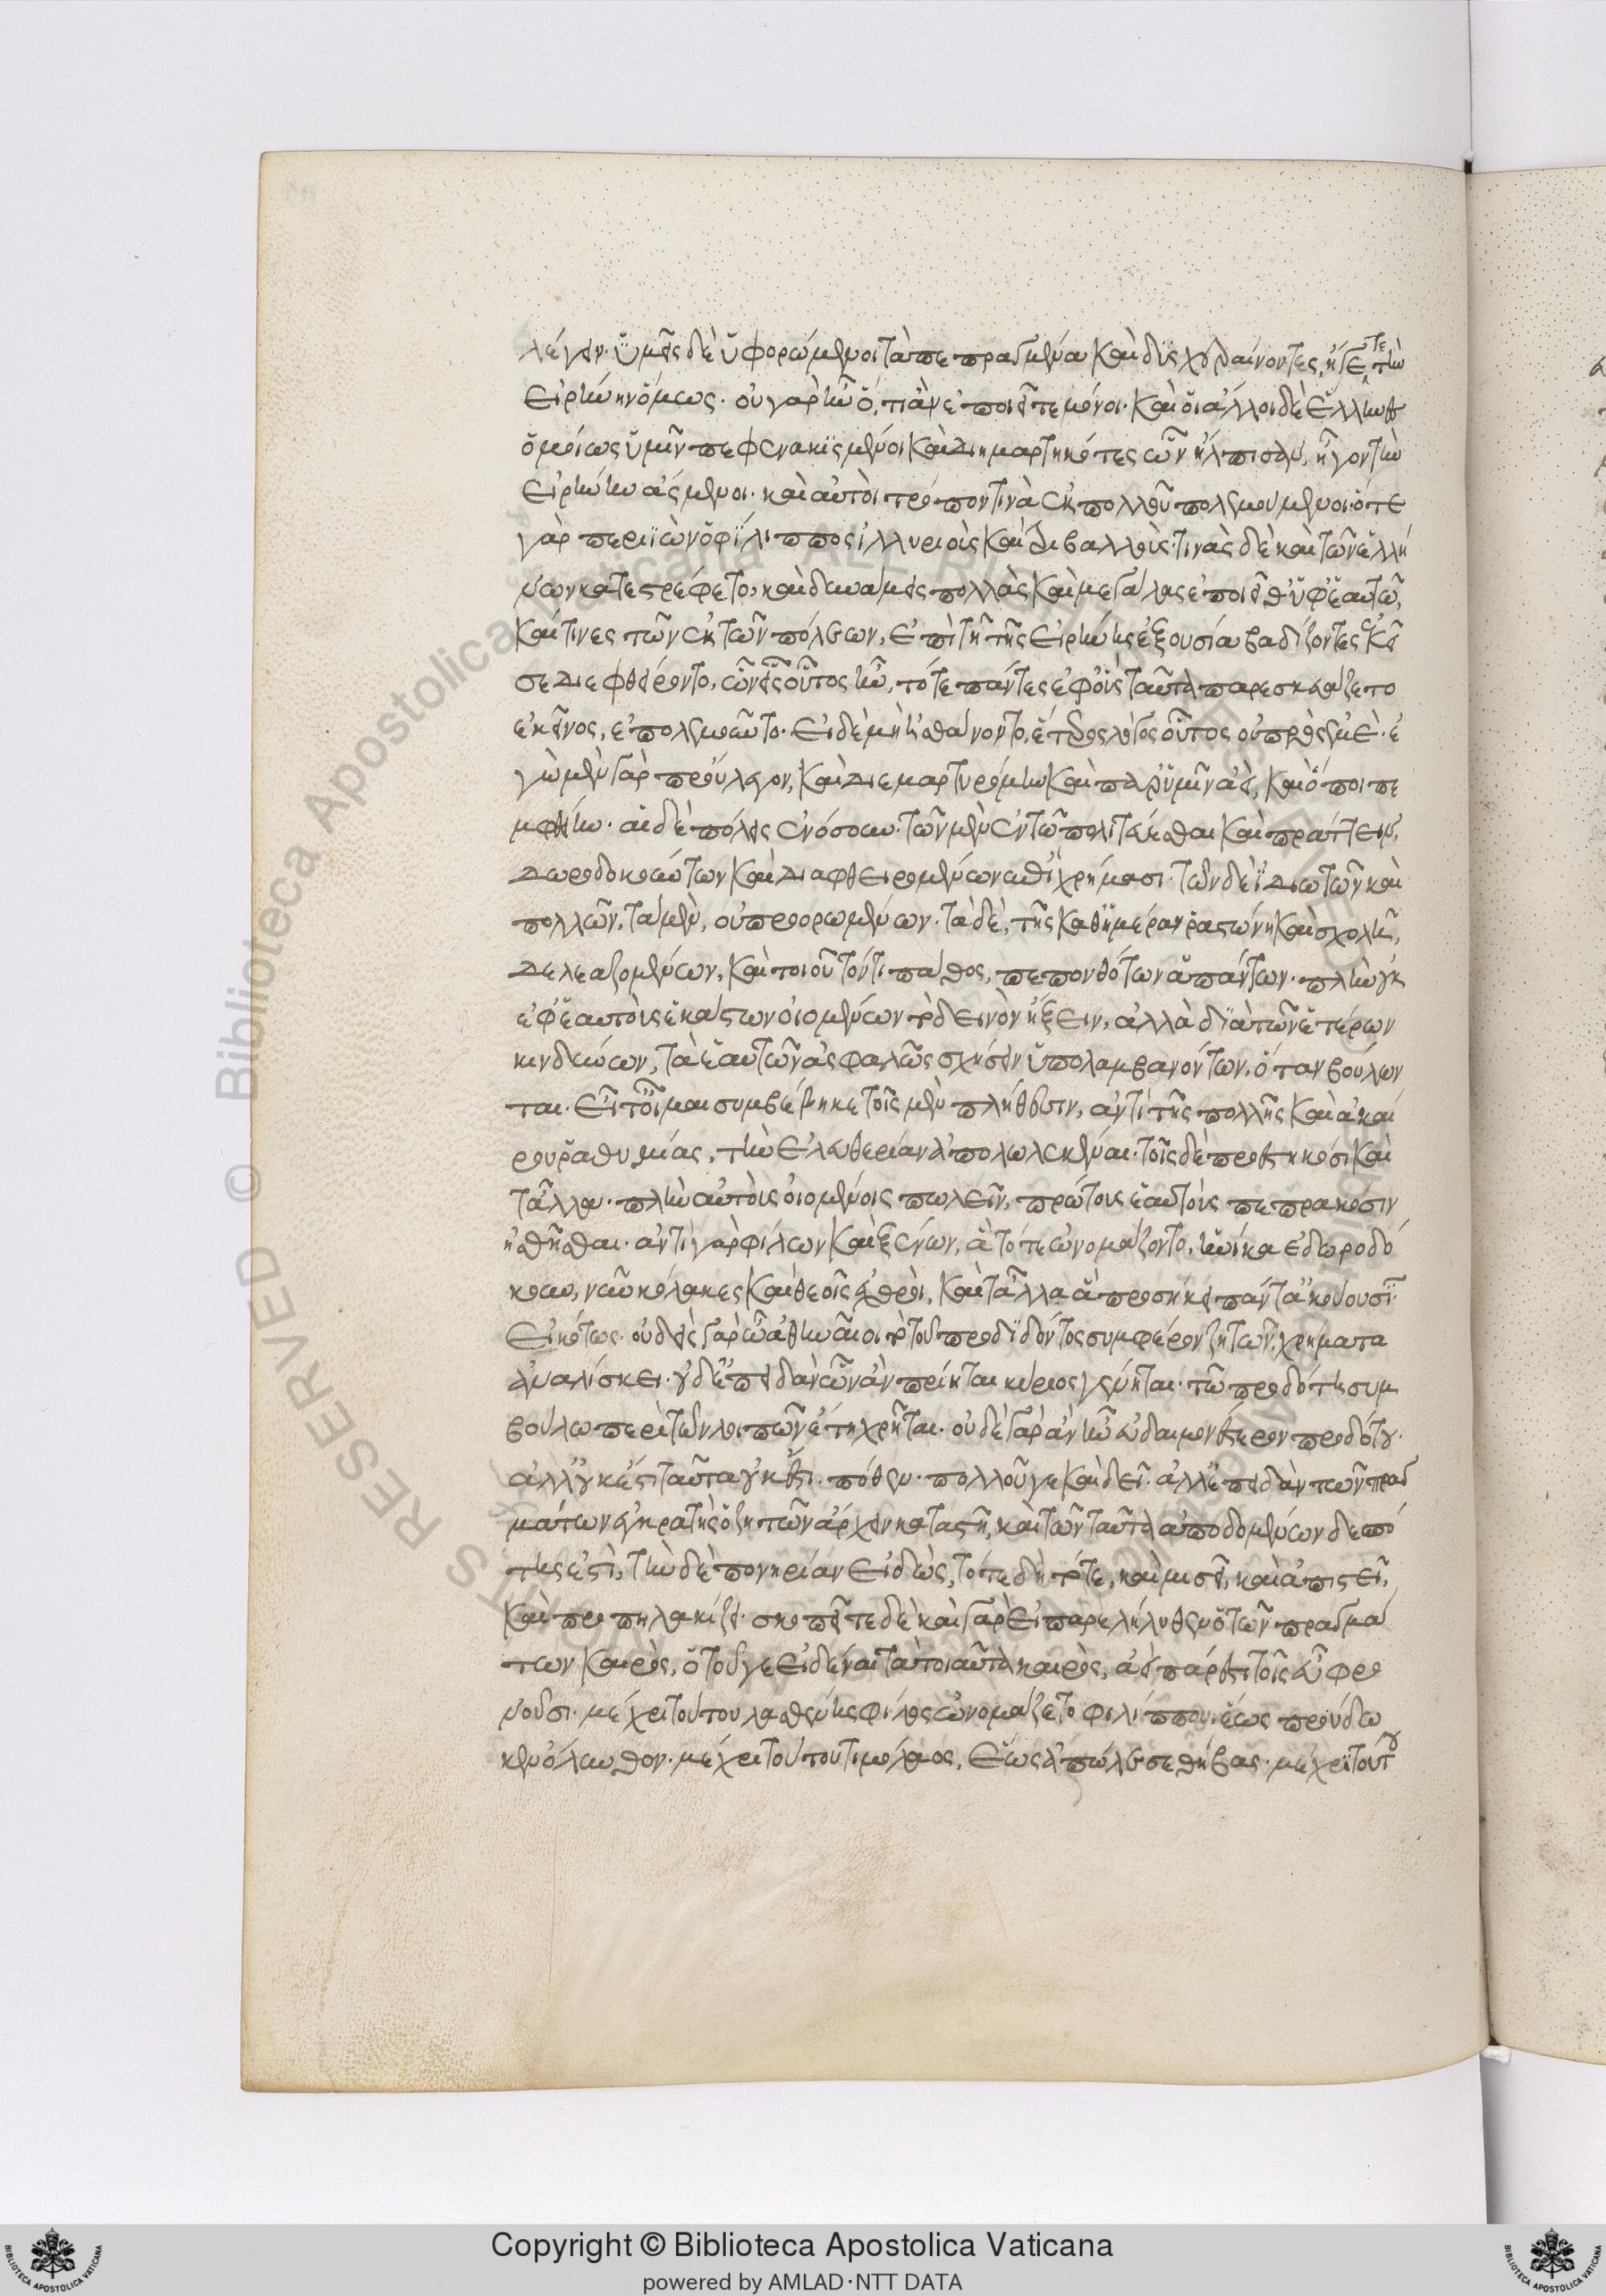 λέγειν· ὑμεῖς δὲ ὑφορώμενοι τὰ πεπραγμένα καὶ δυσχεραίνοντες, ἤγετε τὴν
εἰρήνην ὅμως· οὐ γὰρ ἦν ὅ,τι ἂν ἐποιεῖτε μόνοι· καὶ οἱ ἄλλοι δὲ ἕλληνες
ὁμοίως ὑμῖν πεφενακισμένοι καὶ διημαρτηκότες ὧν ἤλπισαν, ἦγον τὴν
εἰρήνην ἄσμενοι· καὶ αὐτοὶ τρόπον τινὰ ἐκ πολλοῦ πολεμούμενοι· ὅτε
γὰρ περιϊὼν ὁ φίλιππος ἰλλυριοὺς καὶ τριβαλλοὺς· τινὰς δὲ καὶ τῶν ἑλλή
νων κατεστρέφετο, καὶ δυνάμεις πολλὰς καὶ μεγάλας ἐποιεῖθ' ὑφ' ἑαυτῶ,
καί τινες τῶν ἐκ τῶν πόλεων, ἐπὶ τῆ τῆς εἰρήνης ἐξουσία βαδίζοντες ἐκεῖ
σε διεφθείροντο, ὧν εἷς οὗτος ἦν, τότε πάντες ἐφ' οὓς ταῦτα παρεσκευάζετο
ἐκεῖνος, ἐπολεμοῦντο· εἰ δὲ μὴ ἠσθάνοντο, ἕτερος λόγος οὗτος οὐ πρὸς ἐμέ· ἐ
γὼ μὲν γὰρ προύλεγον, καὶ διεμαρτυρόμην καὶ παρ' ὑμῖν ἀεί, καὶ ὅποι πε
μφθείην· αἱ δὲ πόλεις ἐνόσουν· τῶν μὲν ἐν τῶ πολιτεύεσθαι καὶ πράττειν,
δωροδοκούντων καὶ διαφθειρομένων ἐπὶ χρήμασι· τῶν δὲ ἰδιωτῶν καὶ
πολλῶν, τὰ μὲν, οὐ προορωμένων· τὰ δὲ, τῆς καθ' ἡμέραν ῥαστώνη καὶ σχολῆ,
δελεαζομένων, καὶ τοιουτονί τι πάθος, πεπονθότων ἁπάντων· πλὴν οὐκ
ἐφ' ἑαυτοὺς ἑκάστων οἰομένων τὸ δεινὸν ἥξειν, ἀλλὰ διὰ τῶν ἑτέρων
κινδύνων, τὰ ἑαυτῶν ἀσφαλῶς σχήσειν ὑπολαμβανόντων, ὅταν βούλων
ται· εἶτ' οἶμαι συμβέβηκε τοῖς μὲν πλήθεσιν, ἀντὶ τῆς πολλῆς καὶ ἀκαί
ρου ῥαθυμίας, τὴν ἐλευθερίαν ἀπολωλεκέναι· τοῖς δὲ προεστηκόσι καὶ
τἆλλα· πλὴν αὐτοὺς οἰομένοις πωλεῖν, πρώτους ἑαυτοὺς πεπρακόσιν
ἠσθῆσθαι· ἀντὶ γὰρ φίλων καὶ ξένων, ἃ τότε ὠνομάζοντο, ἡνίκα ἐδωροδό
κουν, νῦν κόλακες καὶ θεοῖς ἐχθροὶ, καὶ τἆλλα ἃ προσήκει πάντ' ἀκούουσιν·
εἰκότως· οὐδεὶς γὰρ ὦ ἀθηναῖοι τὸ τοῦ προδιδόντος συμφέρον ζητῶν, χρήματα
ἀναλίσκει· οὐδ' ἐπειδὰν ὧν ἂν πρίηται κύριος γένηται· τῶ προδότη συμ
βούλω περὶ τῶν λοιπῶν ἔτι χρῆται· οὐδὲ γὰρ ἂν ἦν εὐδαιμονέστερον προδότου·
ἀλλ' οὐκ ἔστι ταῦτα οὐκ ἔστι· πόθεν· πολλοῦ γε καὶ δεῖ· ἀλλ' ἐπειδὰν τῶν πραγ
μάτων ἐγκρατὴς ὁ ζητῶν ἄρχειν καταστῆ, καὶ τῶν ταῦτα ἀποδομένων δεσπό
της ἐστὶ, τὴν δὲ πονηρίαν εἰδὼς, τότε δὴ τότε, καὶ μισεῖ, καὶ ἀπιστεῖ,
καὶ προπηλακίζει· σκοπεῖτε δὲ καὶ γὰρ εἰ παρελήλυθεν ὁ τῶν πραγμά
των καιρὸς, ὁ τοῦ γε εἰδέναι τὰ τοιαῦτα καιρὸς, ἀεὶ πάρεστι τοῖς εὖ φρο
νοῦσι· μέχρι τούτου λασθένης φίλος ὠνομάζετο φιλίππου, ἕως προύδω
κεν ὄλυνθον· μέχρι τούτου τιμόλαος, ἕως ἀπώλεσε θήβας· μέχρι τούτου